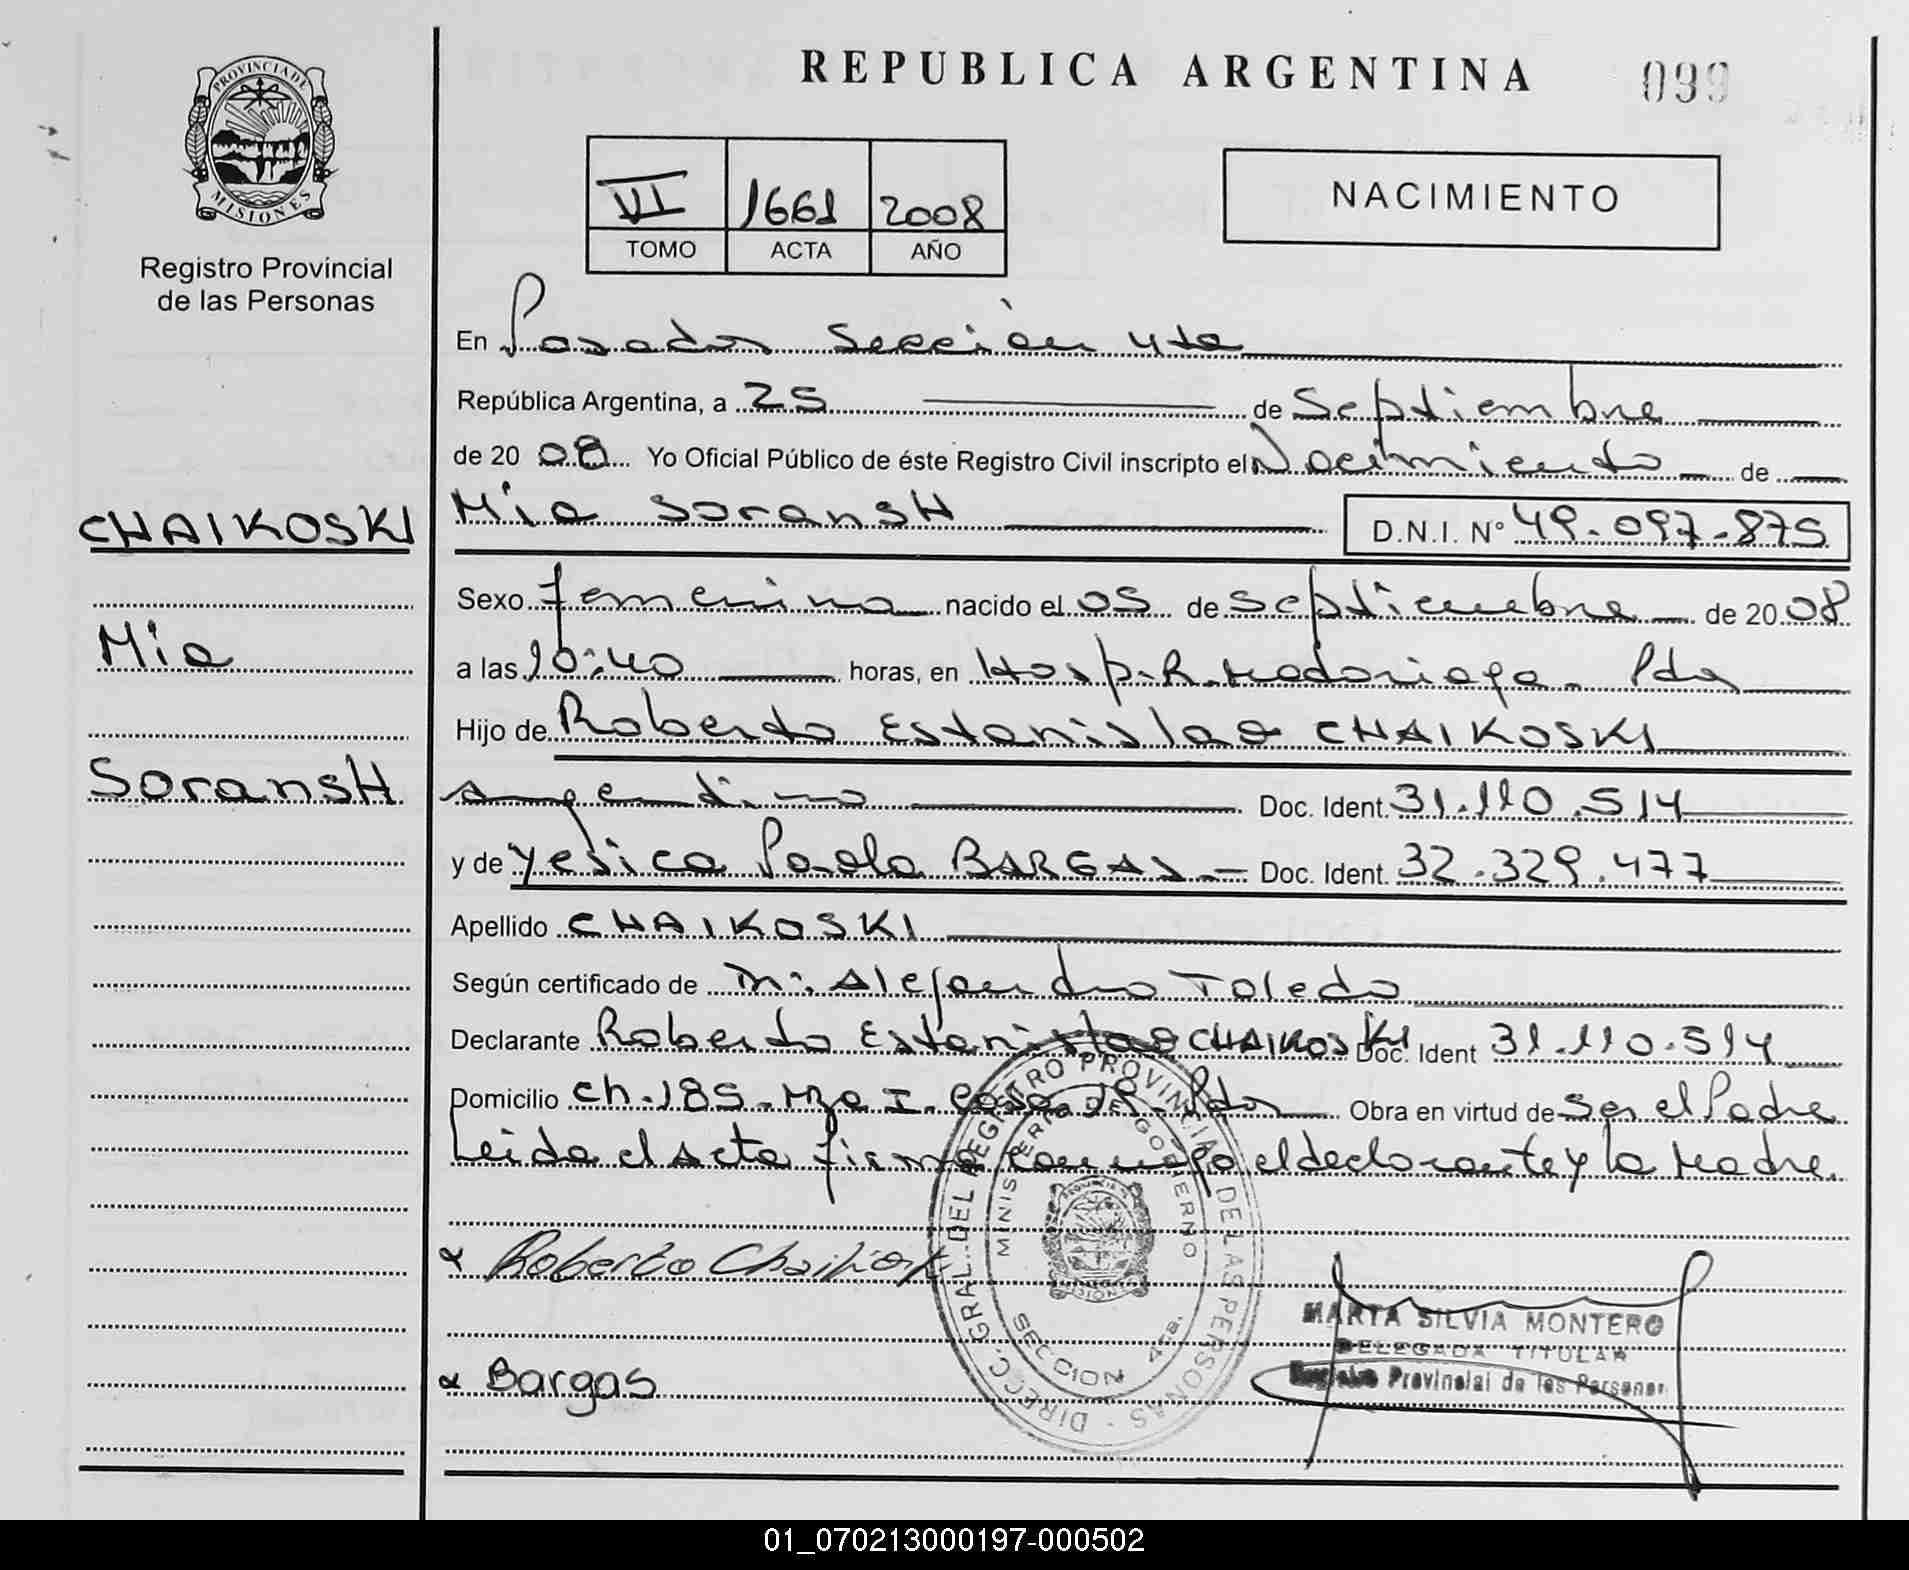 REPUBLICA ARGENTINA
099
PROVINCIA DE
MISIONES
Registro Provincial
de las Personas
VI 1661 2008
TOMO ACTA AÑO
NACIMIENTO
En Posadas Sección 4ta
República Argentina, a 25 de Septiembre
de 20 08 Yo Oficial Público de éste Registro Civil inscripto el Nacimiento de
CHAIKOSKI
Mía
SoransH
Mía SoransH D.N.I. N° 49.097.875
Sexo femenina nacido el 05 de Septiembre de 20 08
a las 10:40 horas, en Hosp. R. Madariaga. Pdas
Hijo de Roberto Estanislao CHAIKOSKI
argentino Doc. Ident. 31.110.514
y de Yesica Paola BARGAS Doc. Ident. 32.329.477
Apellido CHAIKOSKI
Según certificado de Alejandro Toledo
Declarante Roberto Estanislao CHAIKOSKI Doc. Ident 31.110.514
Domicilio Ch. 185. Mza I. Casa 19. Pdas Obra en virtud de Ser el Padre
Leida el acta firma conmigo el declarante y la Madre.
Roberto Chaikosk
Bargas
DIRECC. GRAL. DEL REGISTRO PROVINCIAL DE LAS PERSONAS
MINISTERIO DE GOBIERNO
SECCION 4ta.
MARTA SILVIA MONTERO
DELEGADA TITULAR
Registro Provincial de las Personas
01_070213000197-000502